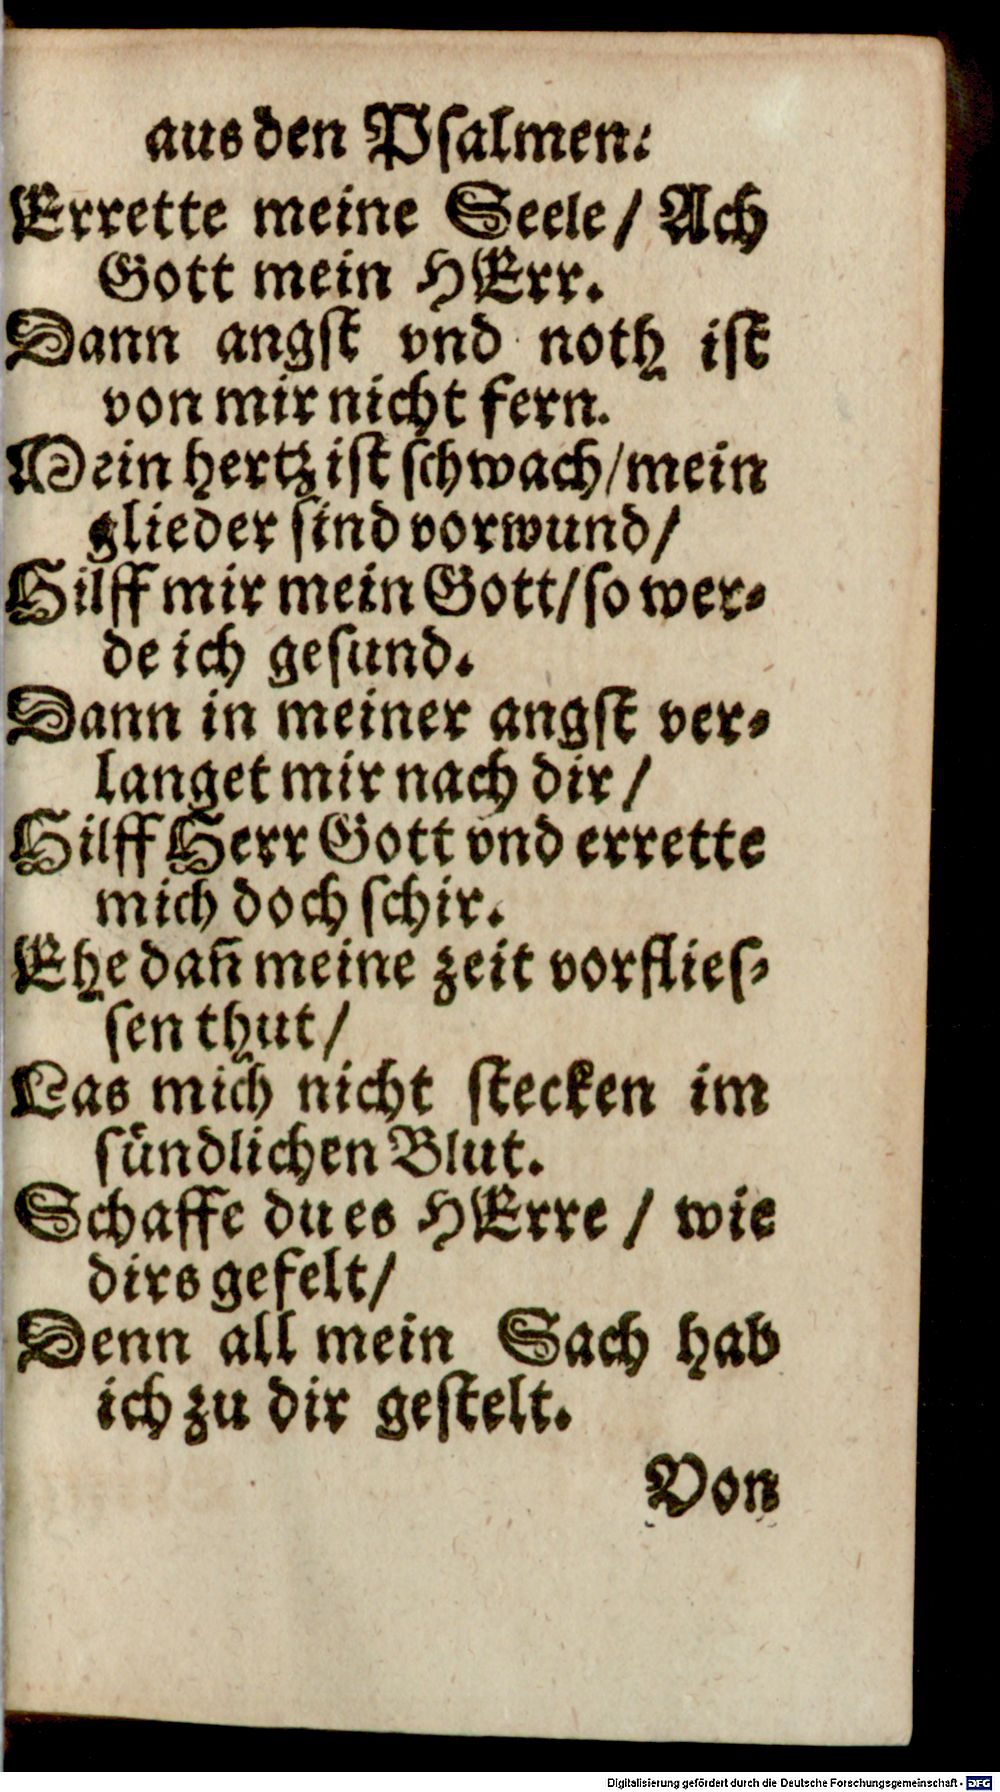 aus den Psalmen:
Errette meine Seele / Ach
Gott mein HErr.
Dann angst vnd noth ist
von mir nicht fern.
Mein hertz ist schwach / mein
glieder sind vorwund /
Hilff mir mein Gott / so wer-
de ich gesund.
Dann in meiner angst ver-
langet mir nach dir /
Hilff Herr Gott vnd errette
mich doch schir.
Ehe dañ meine zeit vorflies-
sen thut /
Las mich nicht stecken im
sündlichen Blut.
Schaffe du es HErre / wie
dirs gefelt /
Denn all mein Sach hab
ich zu dir gestelt.
Von
Digitalisierung gefördert durch die Deutsche Forschungsgemeinschaft - DFG